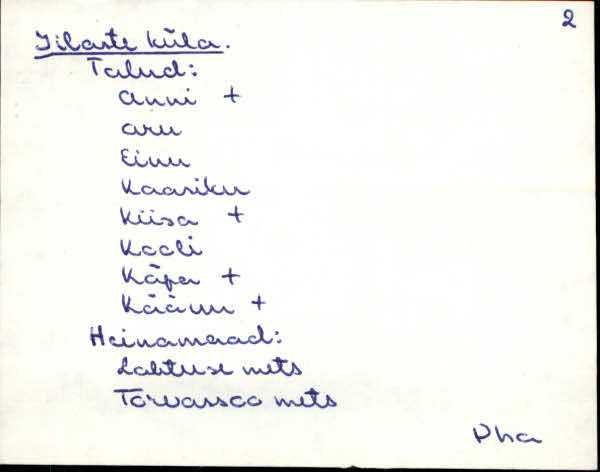 2
Iilaste küla.
Talud:
Anni +
Aru
Einu
Kaasiku
Kiisa +
Kooli
Käpa +
Käänu +
Heinamaad:
Lahtuse mets
Tarvassoo mets
Pha